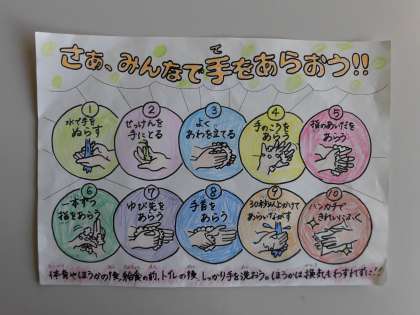 さぁ、みんなで手をあらおう!!
て
① 水で手をぬらす
② せっけんを手にとる
③ よくあわを立てる
④ 手のこうをあらう
⑤ 指のあいだをあらう
⑥ 一本ずつ指をあらう
⑦ ゆび先をあらう
⑧ 手首をあらう
⑨ 30秒以上かけてあらいながす
⑩ ハンカチできれいにふく
体育やほうかの後、給食の前、トイレの後、しっかり手を洗おう。ほうかは、換気もわすれずに!!